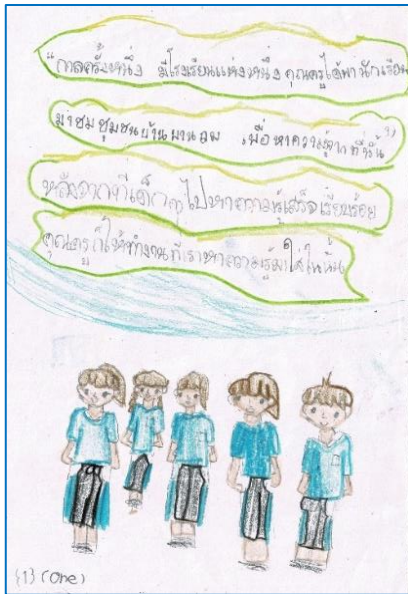 "กาลครั้งหนึ่ง มีโรงเรียนแห่งหนึ่ง คุณครูได้พานักเรียน
มาชมชุมชนบ้านผานอม เพื่อหาความรู้จากที่นั้น"
หลังจากที่เด็กๆไปหาความรู้เสร็จเรียบร้อย
คุณครูก็ให้ทำงานที่เราหาความรู้มาใส่ในนั้น
(1) (One)